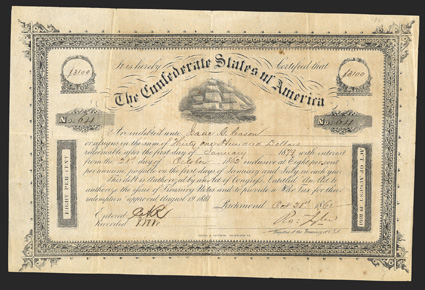 $3100
It is hereby Certified that
$3100
The Confederate States of America
No. 641
No. 641
Are indebted unto Isaac B.
or assigns in the sum of Thirty one Hundred Dollars
redeemable after the first day of January 1874 with interest
from the 21st day of October 1862 inclusive at Eight per cent
per annum, payable on the first days of January and July in each year.
This debt is Authorized by an Act of Congress Entitled "An Act to
authorize the issue of Treasury Notes and to provide a War Tax for their
redemption" approved August 19 1861
EIGHT PER CENT
ACT OF CONGRESS
Richmond Oct 21st 1862
Entered
Recorded
Register of the Treasury C.S.